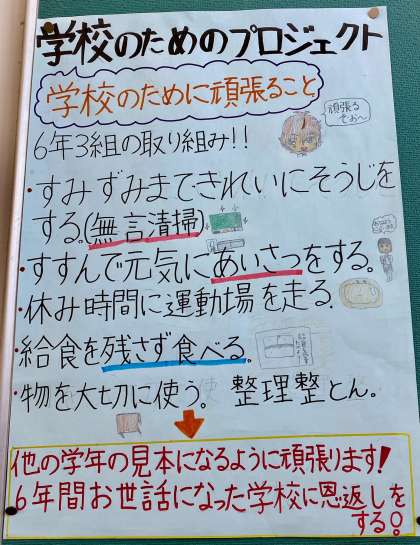 学校のためのプロジェクト
学校のために頑張ること
頑張る
ぞぉ〜
6年3組の取り組み!!
・すみずみまできれいにそうじを
する。(無言清掃)
・すすんで元気にあいさつをする。
・休み時間に運動場を走る.
・給食を残さず食べる。
・物を大切に使う。 整理整とん。
他の学年の見本になるように頑張ります!
6年間お世話になった学校に恩返しを
する。